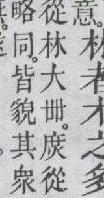 意。林者木之多
從林大卌。庶從
略同。皆貌其衆